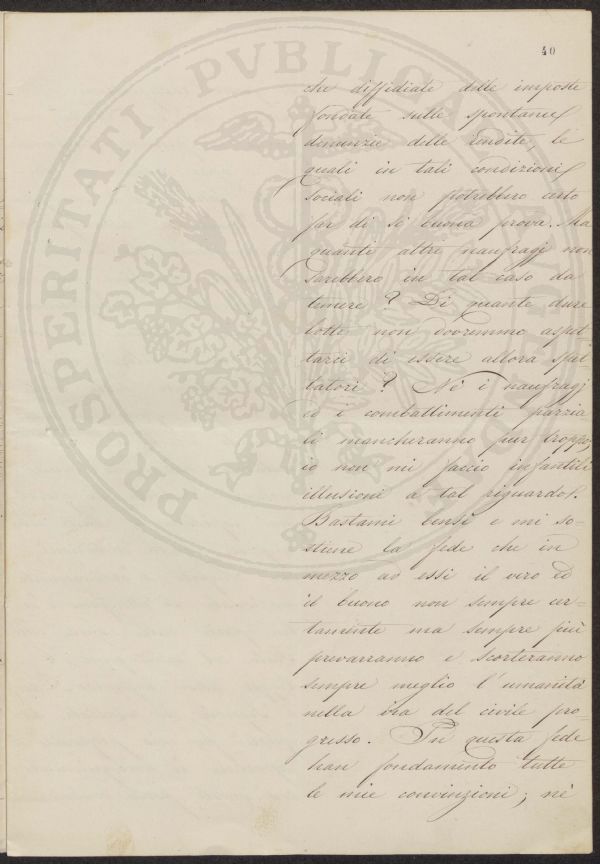 40
che diffidiate delle imposte
fondate sulle spontanee
denunzie delle rendite, le
quali in tali condizioni
sociali non potrebbero certo
far di sè buona prova. Ma
quanti altri naufragi non
sarebbero in tal caso da
temere? Di quante dure
lotte non dovremmo aspet-
tarci di essere allora spet-
tatori? Nè i naufragi
ed i combattimenti parzia-
li mancheranno pur troppo;
io non mi faccio infantili
illusioni a tal riguardo.
Bastami bensì e mi so-
stiene la fede che in
mezzo ad essi il vero ed
il buono non sempre cer-
tamente ma sempre più
prevarranno e scorteranno
sempre meglio l'umanità
nella via del civile pro-
gresso. In questa fede
han fondamento tutte
le mie convinzioni; nè
PROSPERITATI PVBLICAE